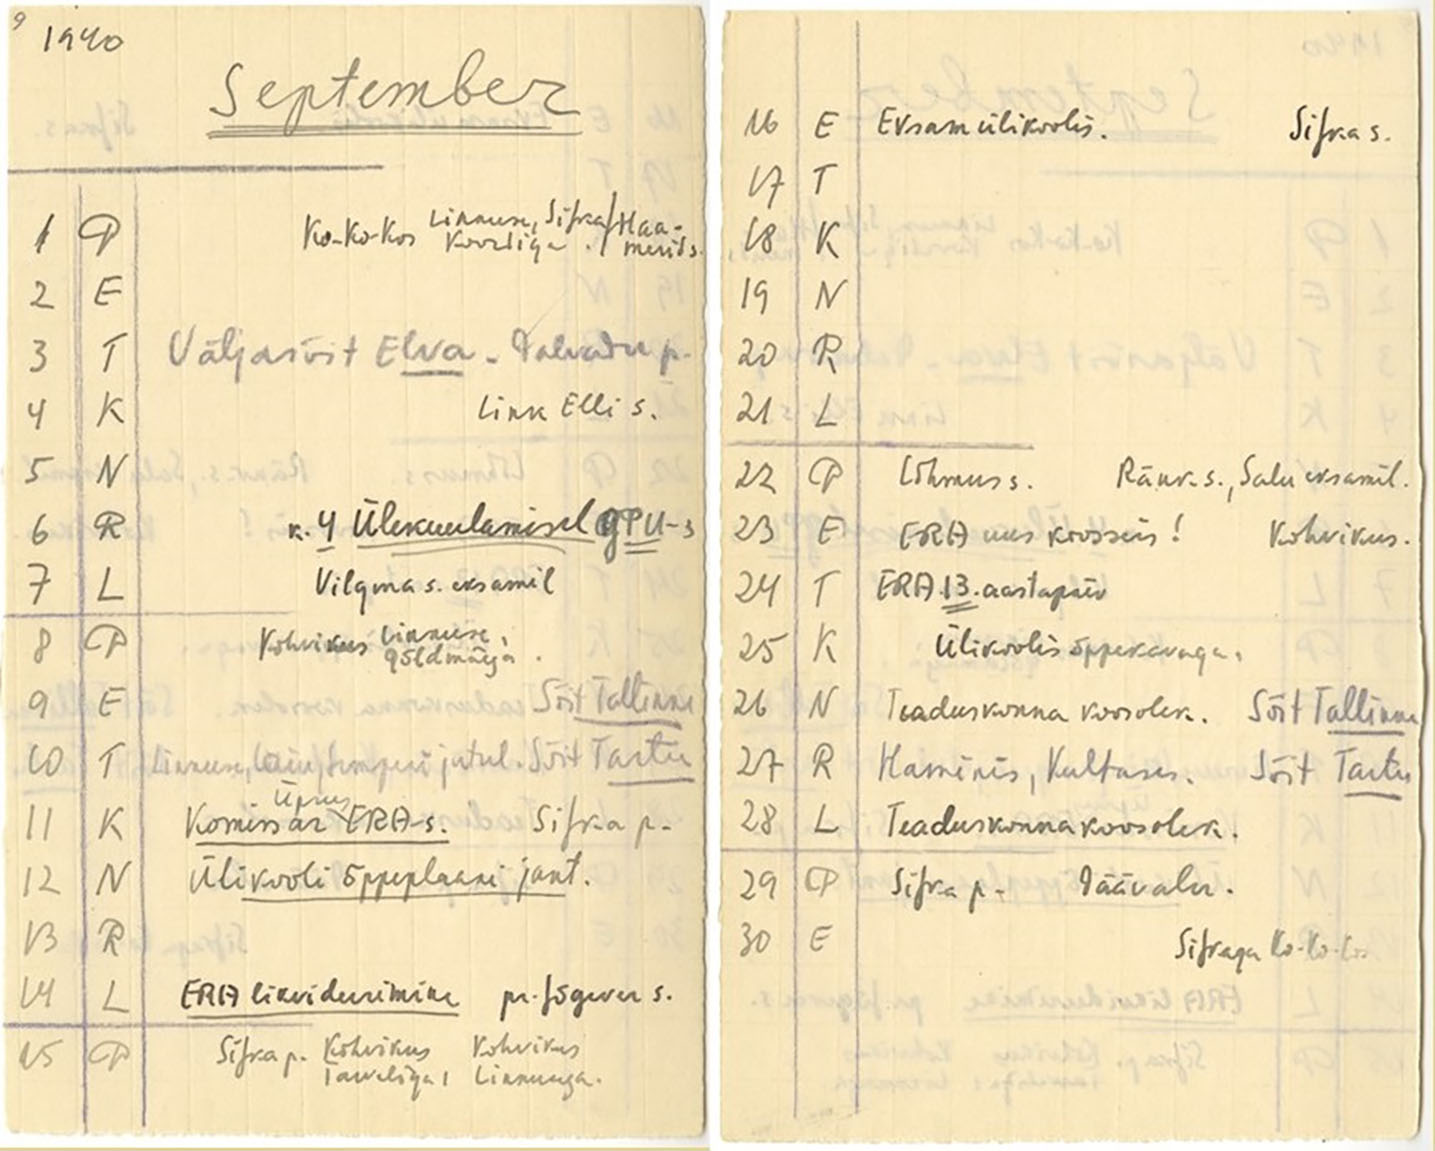 9
1940
September
1 P Ko-Ko-Kos Linnuse, Sifka / Haa-
Koorliga. meris s.
2 E
3 T Väljasõit Elva - p.
4 K Link Elli s.
5 N
6 R k. 4 Ülekuulamisel GPU-s
7 L Vilgma s. eksamil
8 P Kohvikus Linnuse,
Põldmäega.
9 E Sõit Tallinna
10 T Linnuse, jutul. Sõit Tartu
Üprus
11 K Komissar ERA-s. Sifka p.
12 N Ülikooli õppeplaani jant.
13 R
14 L ERA likvideerimine pr. Jõgever s.
15 P Sifka p. Kohvikus Kohvikus
Laureliga, Linnusega.
16 E Eksam ülikoolis. Sifka s.
17 T
18 K
19 N
20 R
21 L
22 P Lõhmus s. Ränk s., Salu eksamil.
23 E ERA uus koosseis! Kohvikus.
24 T ERA 13. aastapäev
25 K Ülikoolis õppekavaga.
26 N Teaduskonna koosolek. Sõit Tallinna
27 R Haminis, Kultases. Sõit Tartu
28 L Teaduskonna koosolek.
29 P Sifka p. Päävaler.
30 E Sifkaga Ko-Ko-Kos